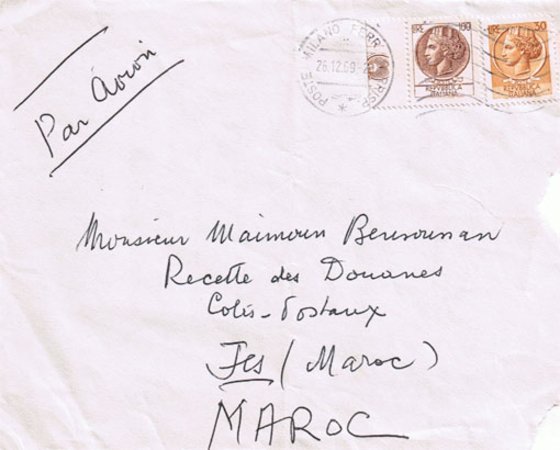 MILANO FERR. CORRISP.
26.12.69
POSTE
LIRE 100
LIRE 30
REPVBBLICA
ITALIANA
REPVBBLICA
ITALIANA
Par Avion
Monsieur Maimoun Bensoussan
Recette des Douanes
Colis-Postaux
Fes (Maroc)
MAROC